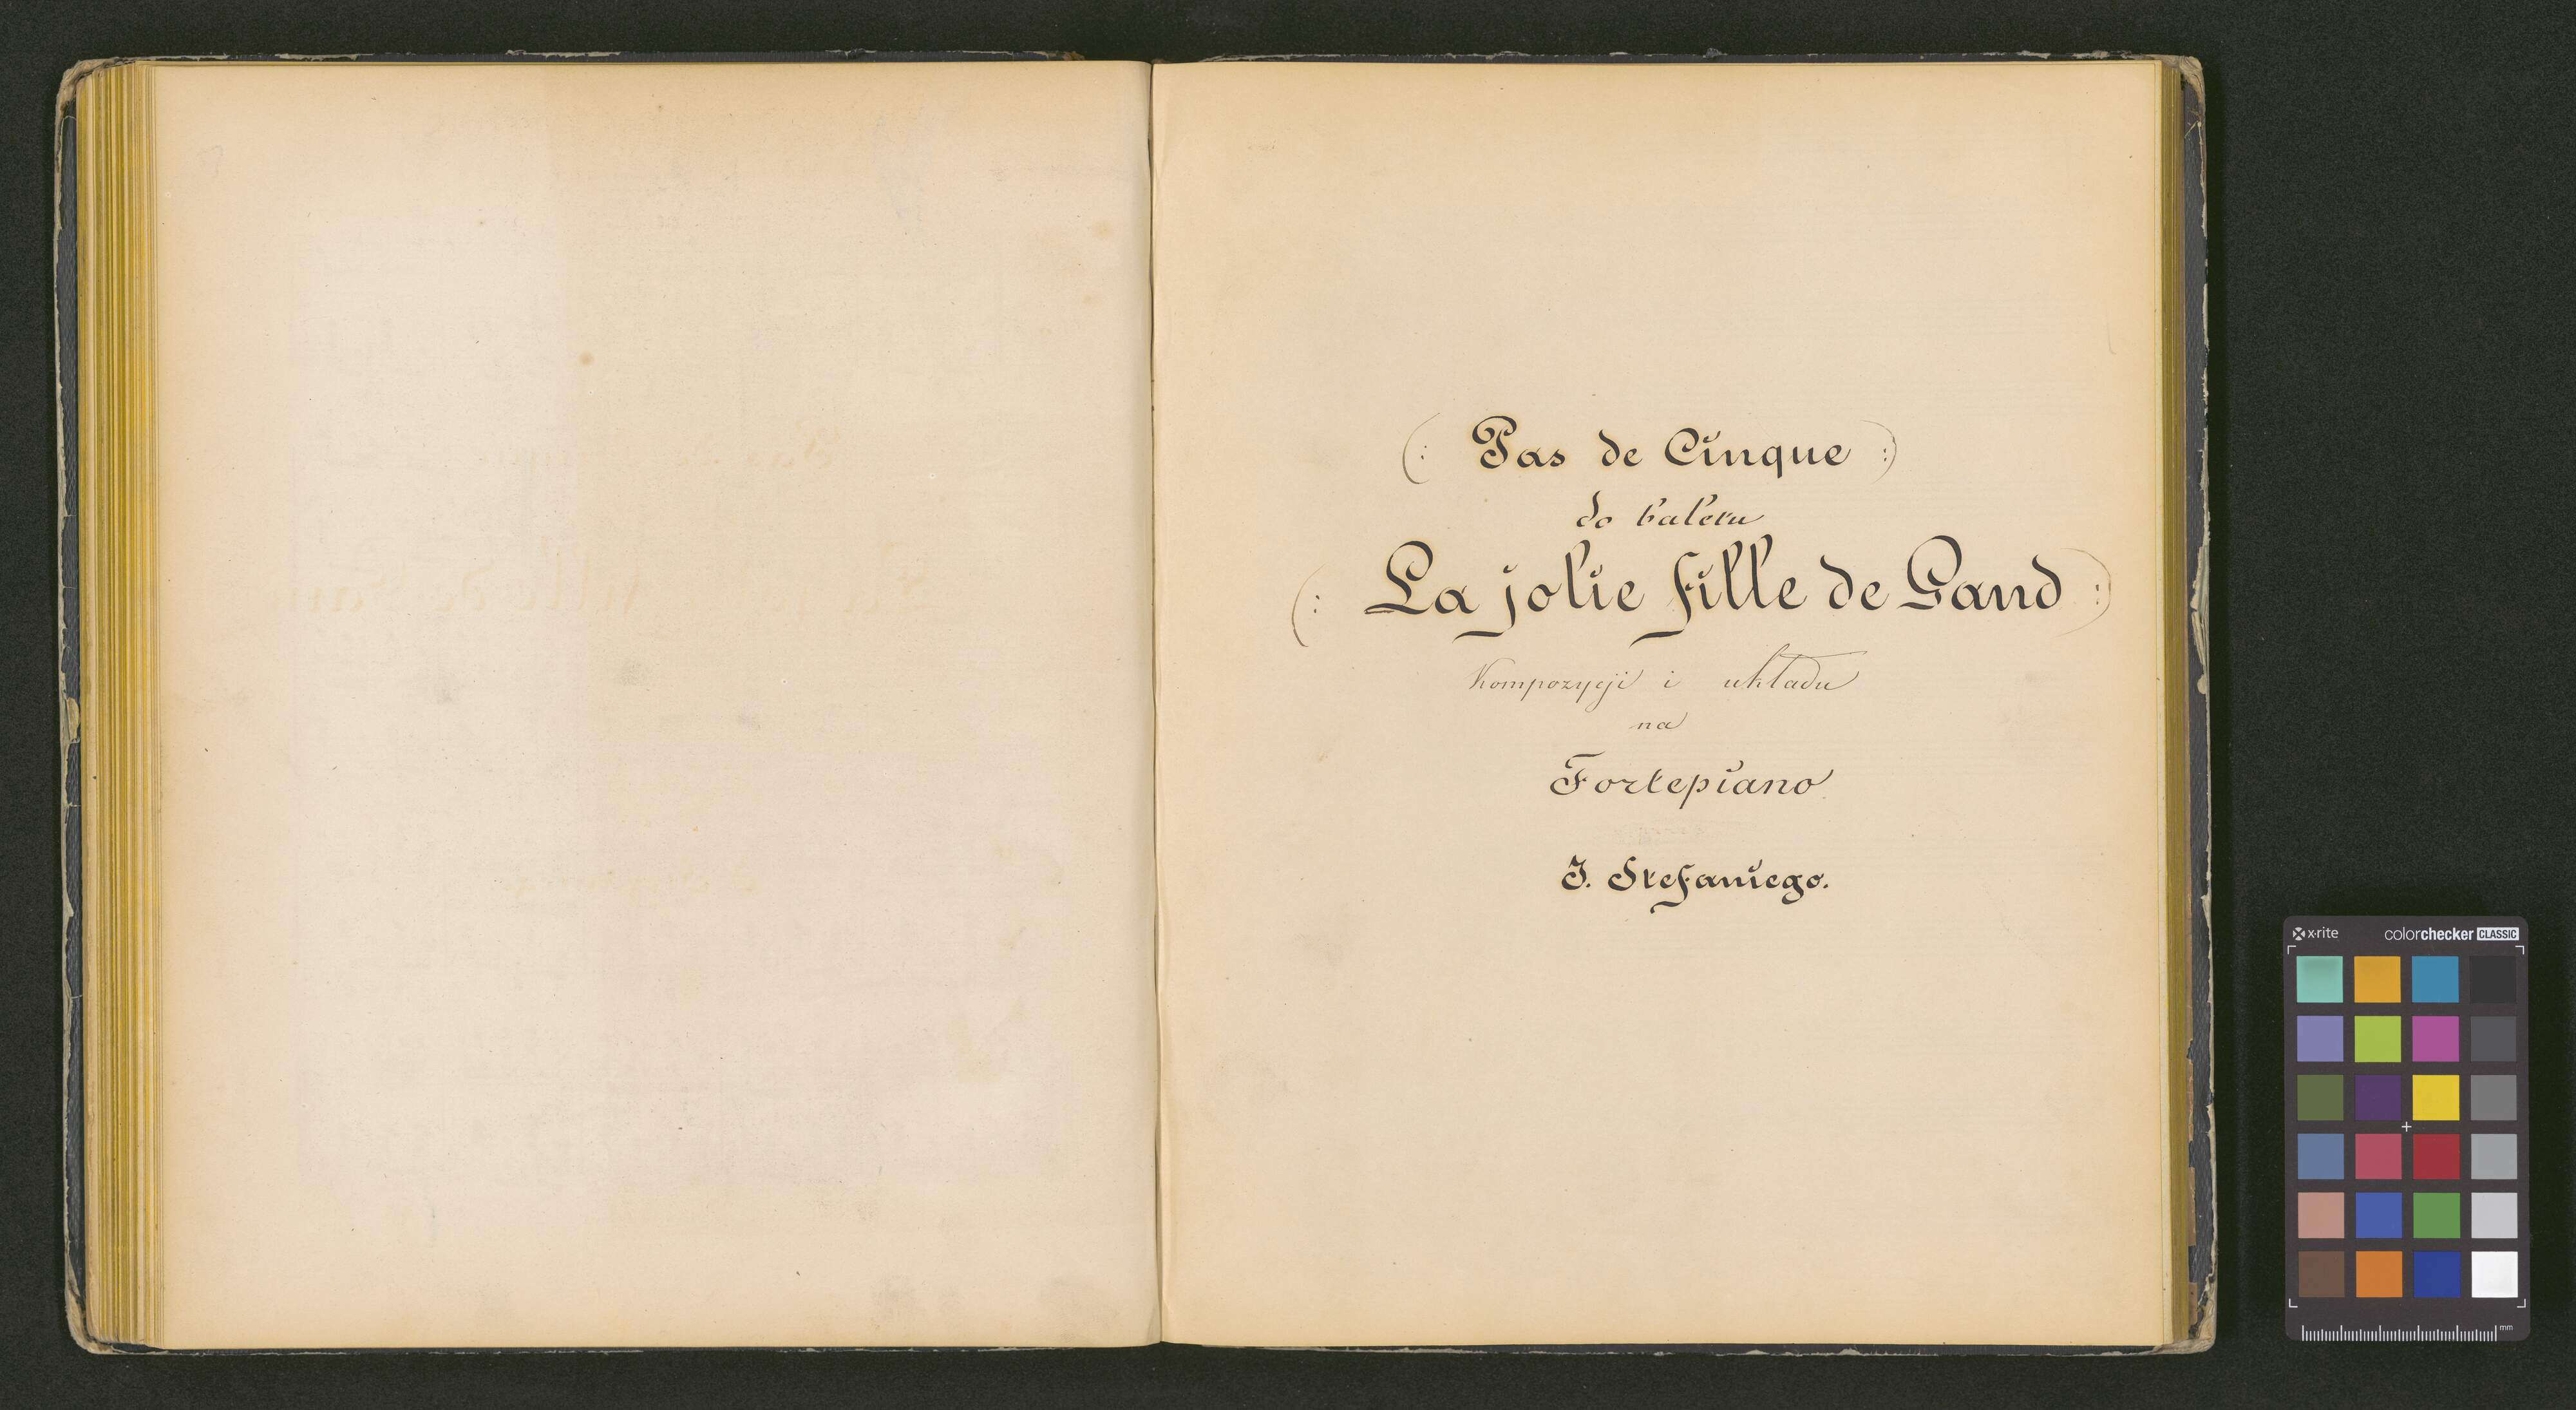 (: Pas de Cinque :)
do baletu
(: La jolie fille de Gand :)
Kompozycji i układu
na
Fortepiano
J. Stefaniego.
x·rite colorchecker CLASSIC
mm